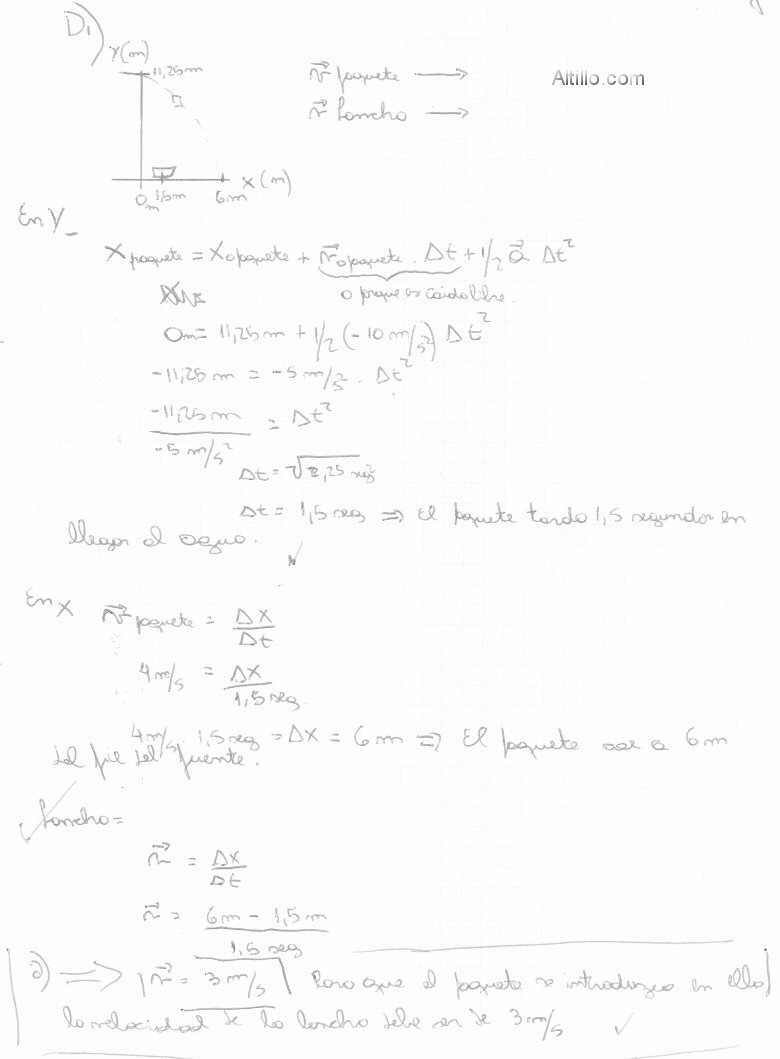 D1)
Y(m)
11,25m
v⃗ paquete ⟶
Altillo.com
v⃗ lancha ⟶
0m 1,5m 6m X(m)
En Y_
X paquete = X0 paquete + v⃗0 paquete . Δt + 1/2 a⃗ Δt²
0 porque es caida libre.
0m = 11,25m + 1/2 (-10 m/s²) Δt²
-11,25 m = -5 m/s² . Δt²
-11,25m / -5 m/s² = Δt²
Δt = √2,25 seg²
Δt = 1,5 seg ⇒ El paquete tarda 1,5 segundos en
llegar al agua.
En X v⃗ paquete = ΔX/Δt
4 m/s = ΔX / 1,5 seg.
4 m/s . 1,5 seg = ΔX = 6m ⇒ El paquete cae a 6m
del pie del puente.
Lancha=
v⃗ = ΔX/Δt
v⃗ = 6m - 1,5m / 1,5 seg
a) ⟹ v⃗ = 3 m/s Para que el paquete se introduzca en ella
la velocidad de la lancha debe ser de 3 m/s